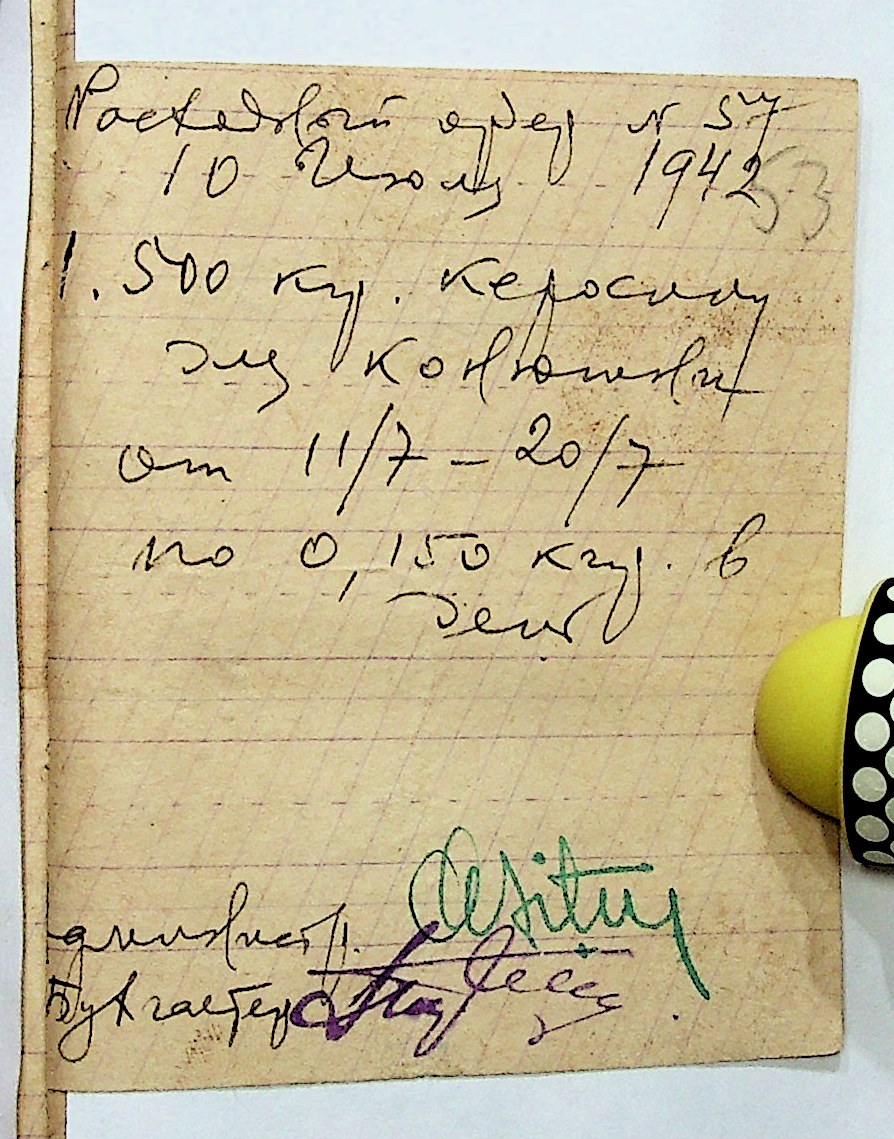 Расходовый ордер N 57
10 Июля 1942
53
1.500 кгр. керосину
для конюшни
от 11/7 – 20/7
по 0,150 кгр. в
день
администр.
Бухгалтер